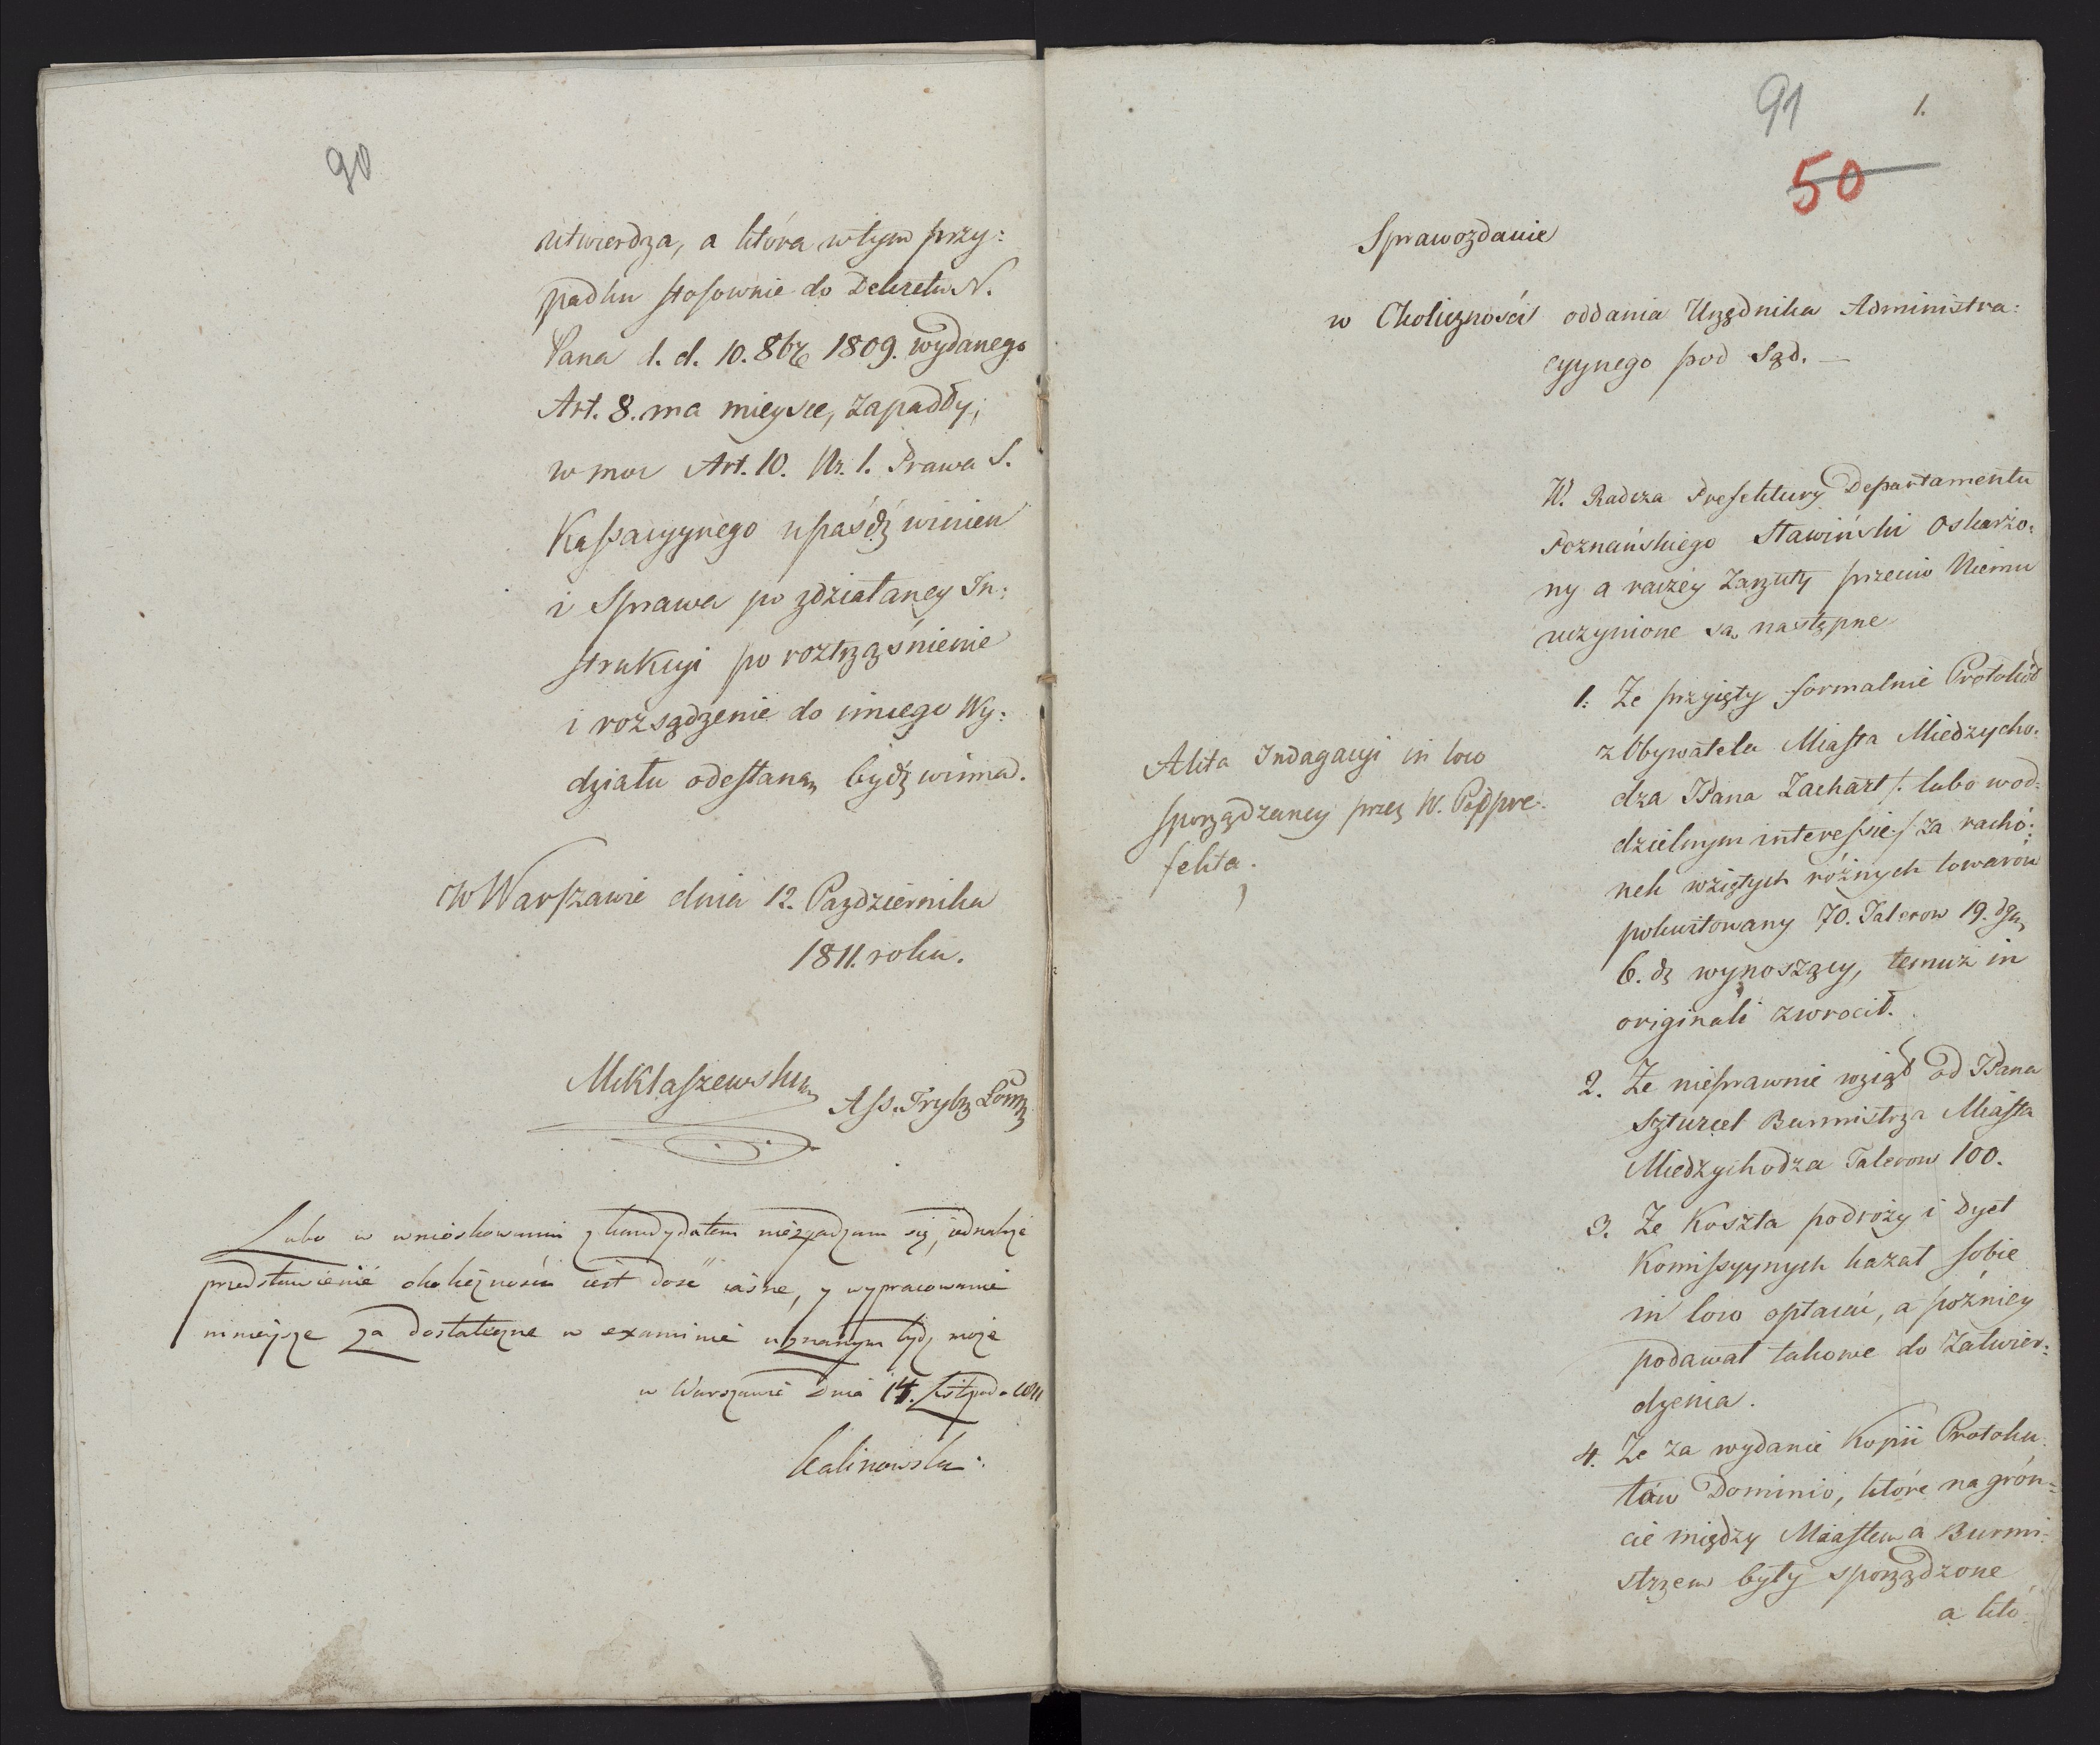 90
utwierdza, a która w tym przy:
padku stosownie do Dekretu N.
Pana d. d. 10. 8br 1809. wydanego
Art. 8. ma mieysce, zapadły,
w moc Art. 10. Nr. 1. Prawa S.
Kassacyynego upaśdź winien
i Sprawa po zdziałaney In:
strukcyi po roztrząśnienie
i rozsądzenie do innego Wy:
działu odesłaną bydź winna.
w Warszawie dnia 12. Pazdziernika
1811. roku.
Miklaszewski
Ass. Tryb.
Lubo w wnioskowaniu z kandydatem niezgadzam się, jednakże
przedstawienie okoliczności iest dosć iasne, y wypracowanie
ninieysze za dostateczne w examinie uznanym bydź może
w Warszawie Dnia 14. Listopada 1811
Kalinowski.
91
1.
50
Sprawozdanie
w Okoliczności oddania Urzędnika Administra:
cyynego pod Sąd. —
W. Radcza Prefektury Departamentu
Poznańskiego Stawiński Oskarżo:
ny a raczey Zarzuty przeciw Niemu
uczynione są następne
1. Ze przyięty formalnie Protokół
z Obywatela Miasta Miedzycho:
dza JPana Zachart /: lubo w od:
dzielnym interessie :/ za racho:
nek wziętych różnych towarów
pokwitowany 70. Talerow 19. dgr,
6. d wynoszący, temuż in
originali zwrocił.
Akta Indagacyi in loco
sporządzaney przez W. Podpre:
fekta.
2. Ze nieprawnie wziął od JPana
Szturcel Burmistrza Miasta
Miedzychodza Talerow 100.
3. Ze Koszta podroży i Dyet
Komissyynych kazał sobie
in loco opłacić, a pożniey
podawał takowe do Zatwier:
dzenia.
4. Ze za wydanie Kopii Protoku:
łów Dominio, które na grón:
cie między Miastem a Burmi:
strzem były sporządzone
a któ: